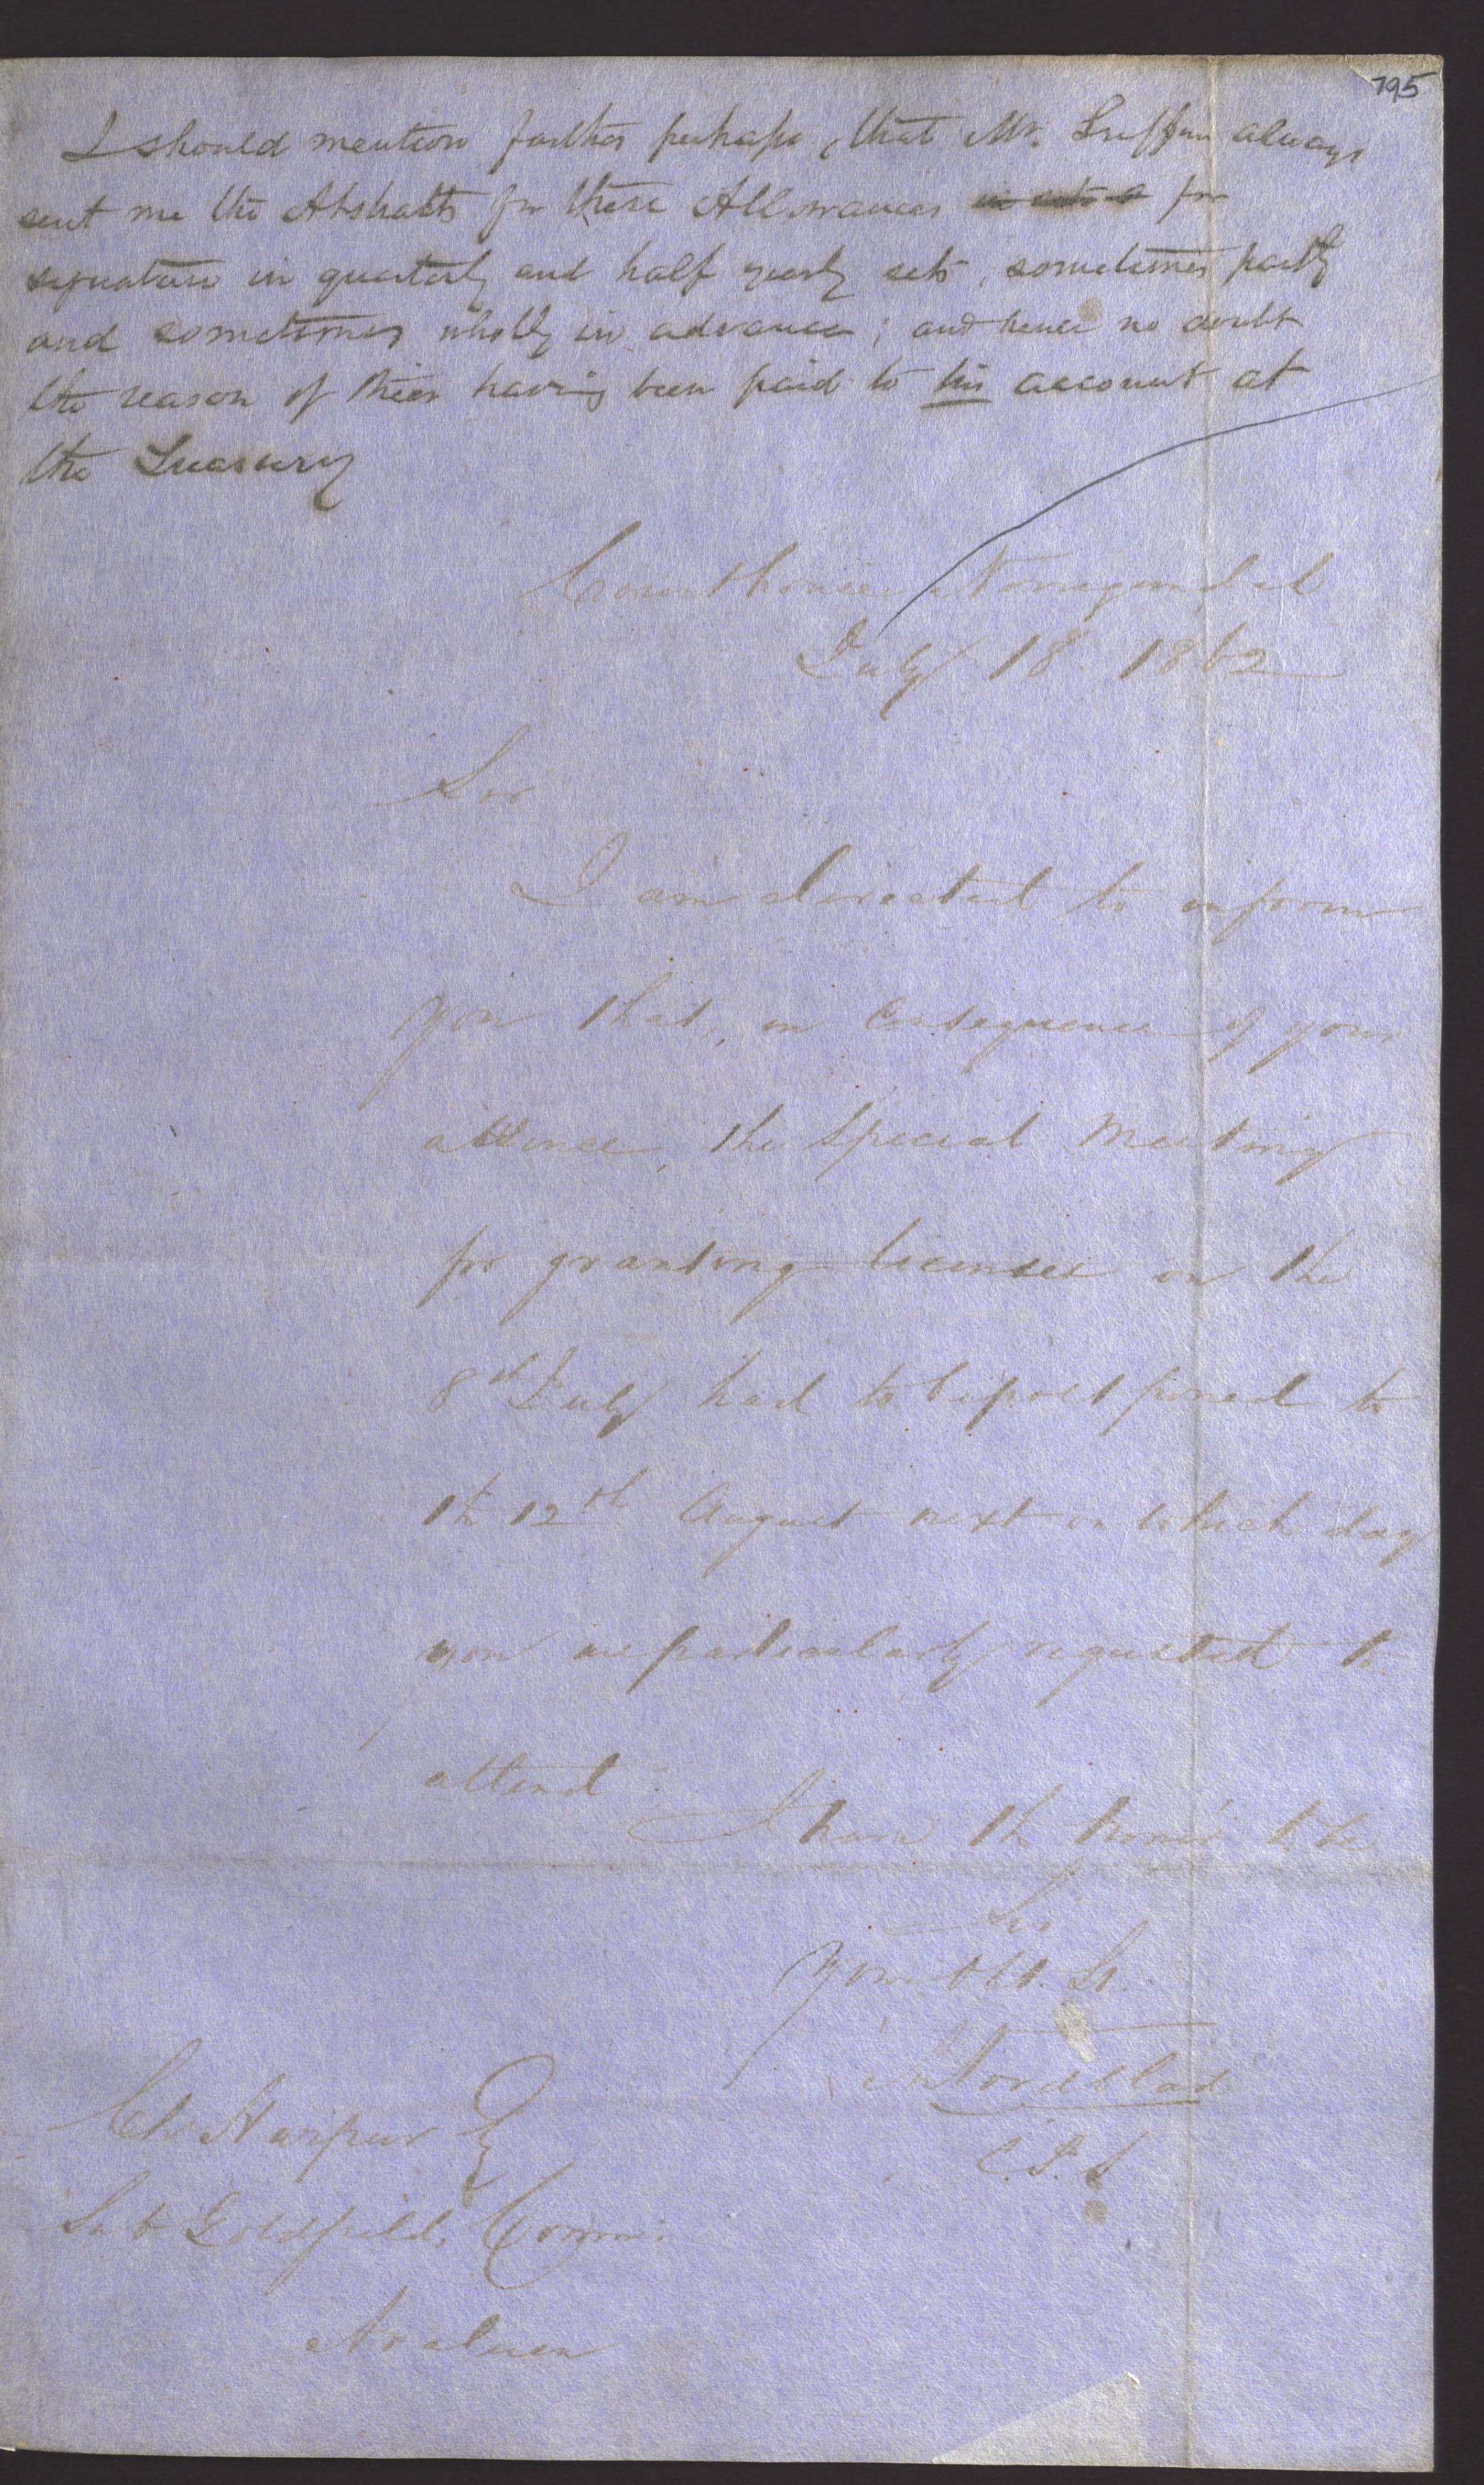 795
I should mention further perhaps, that Mr. Griffin always
sent me the Abstracts for these Allowances for
signature in quarterly and half yearly sets, sometimes partly
and sometimes wholly in advance; and hence no doubt
the reason of their having been paid to his account at
the Treasury
Courthouse Nerrigundah
July 18 1862
Sir
I am directed to inform
you that, in Consequence of your
absence, the Special Meeting
for granting licenses on the
8th July had to be postponed to
the 12th August next on which day
you are particularly requested to
attend.
I have the honor to be
Sir
Your Obt. St.
C.P.S
Chs Harpur Esq
Sub Goldfields Comm:
Araluen